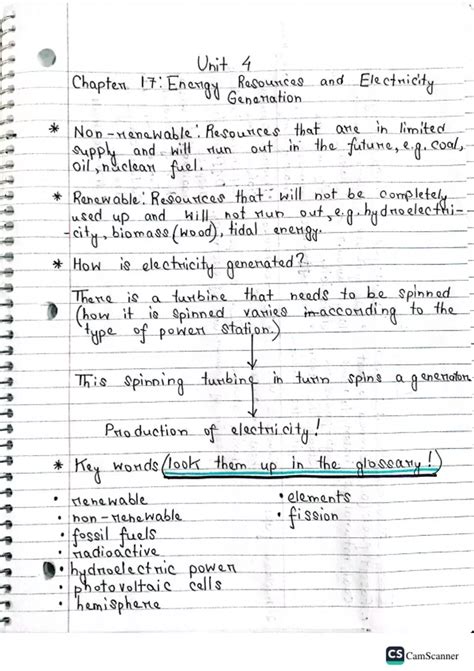 Unit 4
Chapter 17: Energy Resources and Electricity
Generation
* Non-renewable: Resources that are in limited
supply and will run out in the future, e.g. coal,
oil, nuclear fuel.
* Renewable: Resources that will not be completely
used up and will not run out, e.g. hydroelectri-
-city, biomass (wood), tidal energy.
* How is electricity generated?
There is a turbine that needs to be spinned
(how it is spinned varies in according to the
type of power station.)
This spinning turbine in turn spins a generator
Production of electricity!
* Key words (look them up in the glossary!)
• renewable
• non-renewable
• fossil fuels
• radioactive
• hydroelectric power
• photovoltaic calls
• hemisphere
• elements
• fission
CS CamScanner